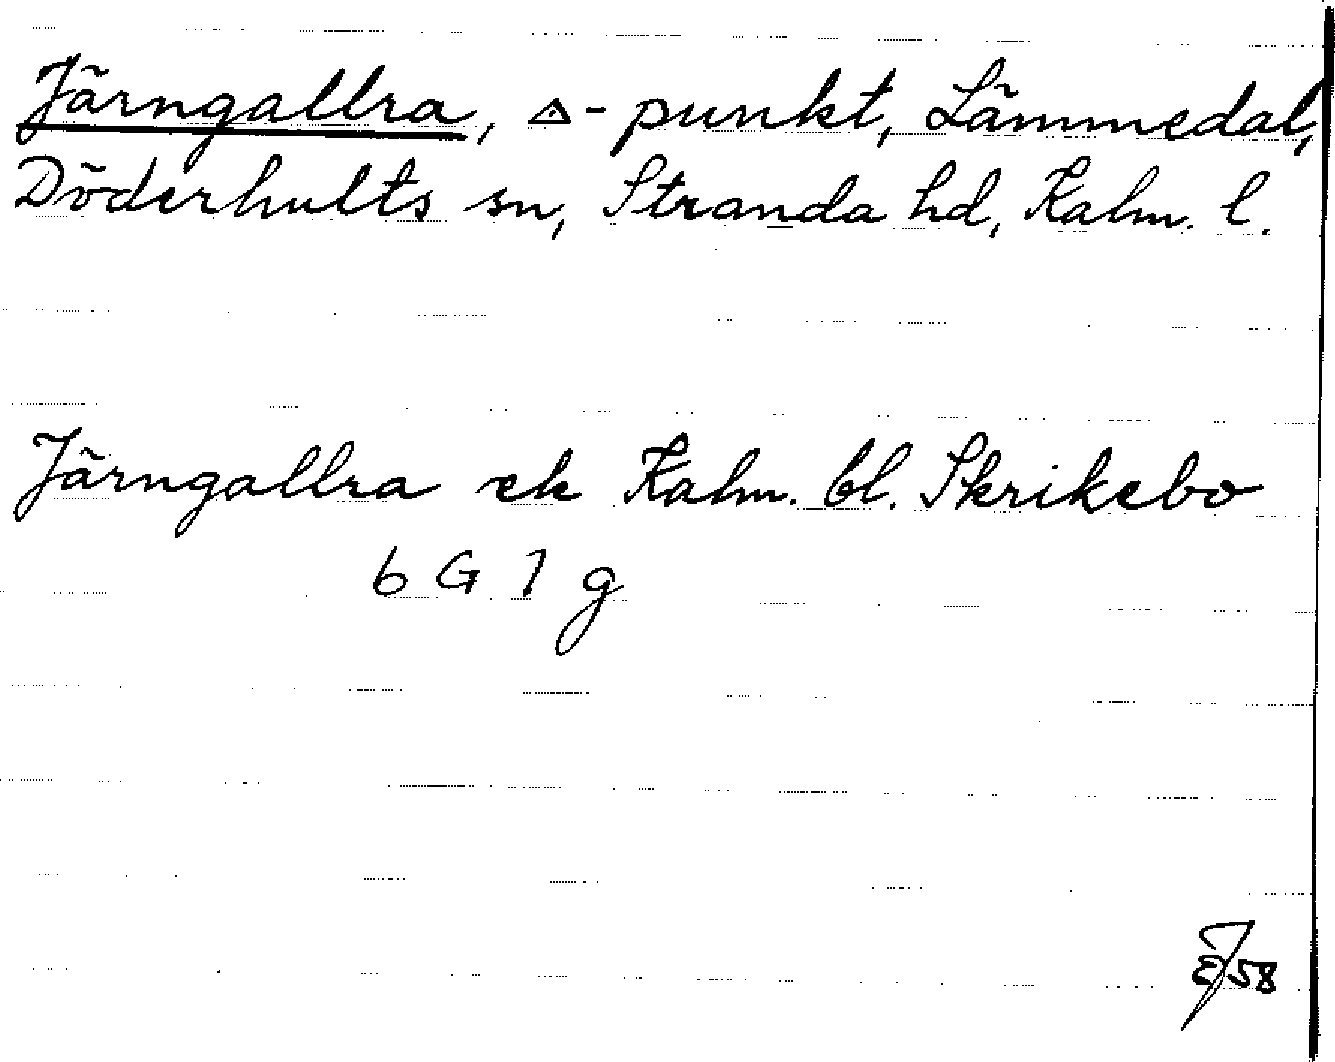 Järngallra, △-punkt, Lämmedal,
Döderhults sn, Stranda hd, Kalm. l.
Järngallra ek Kalm. bl. Skrikebo
6 G 7 g
EJ 58